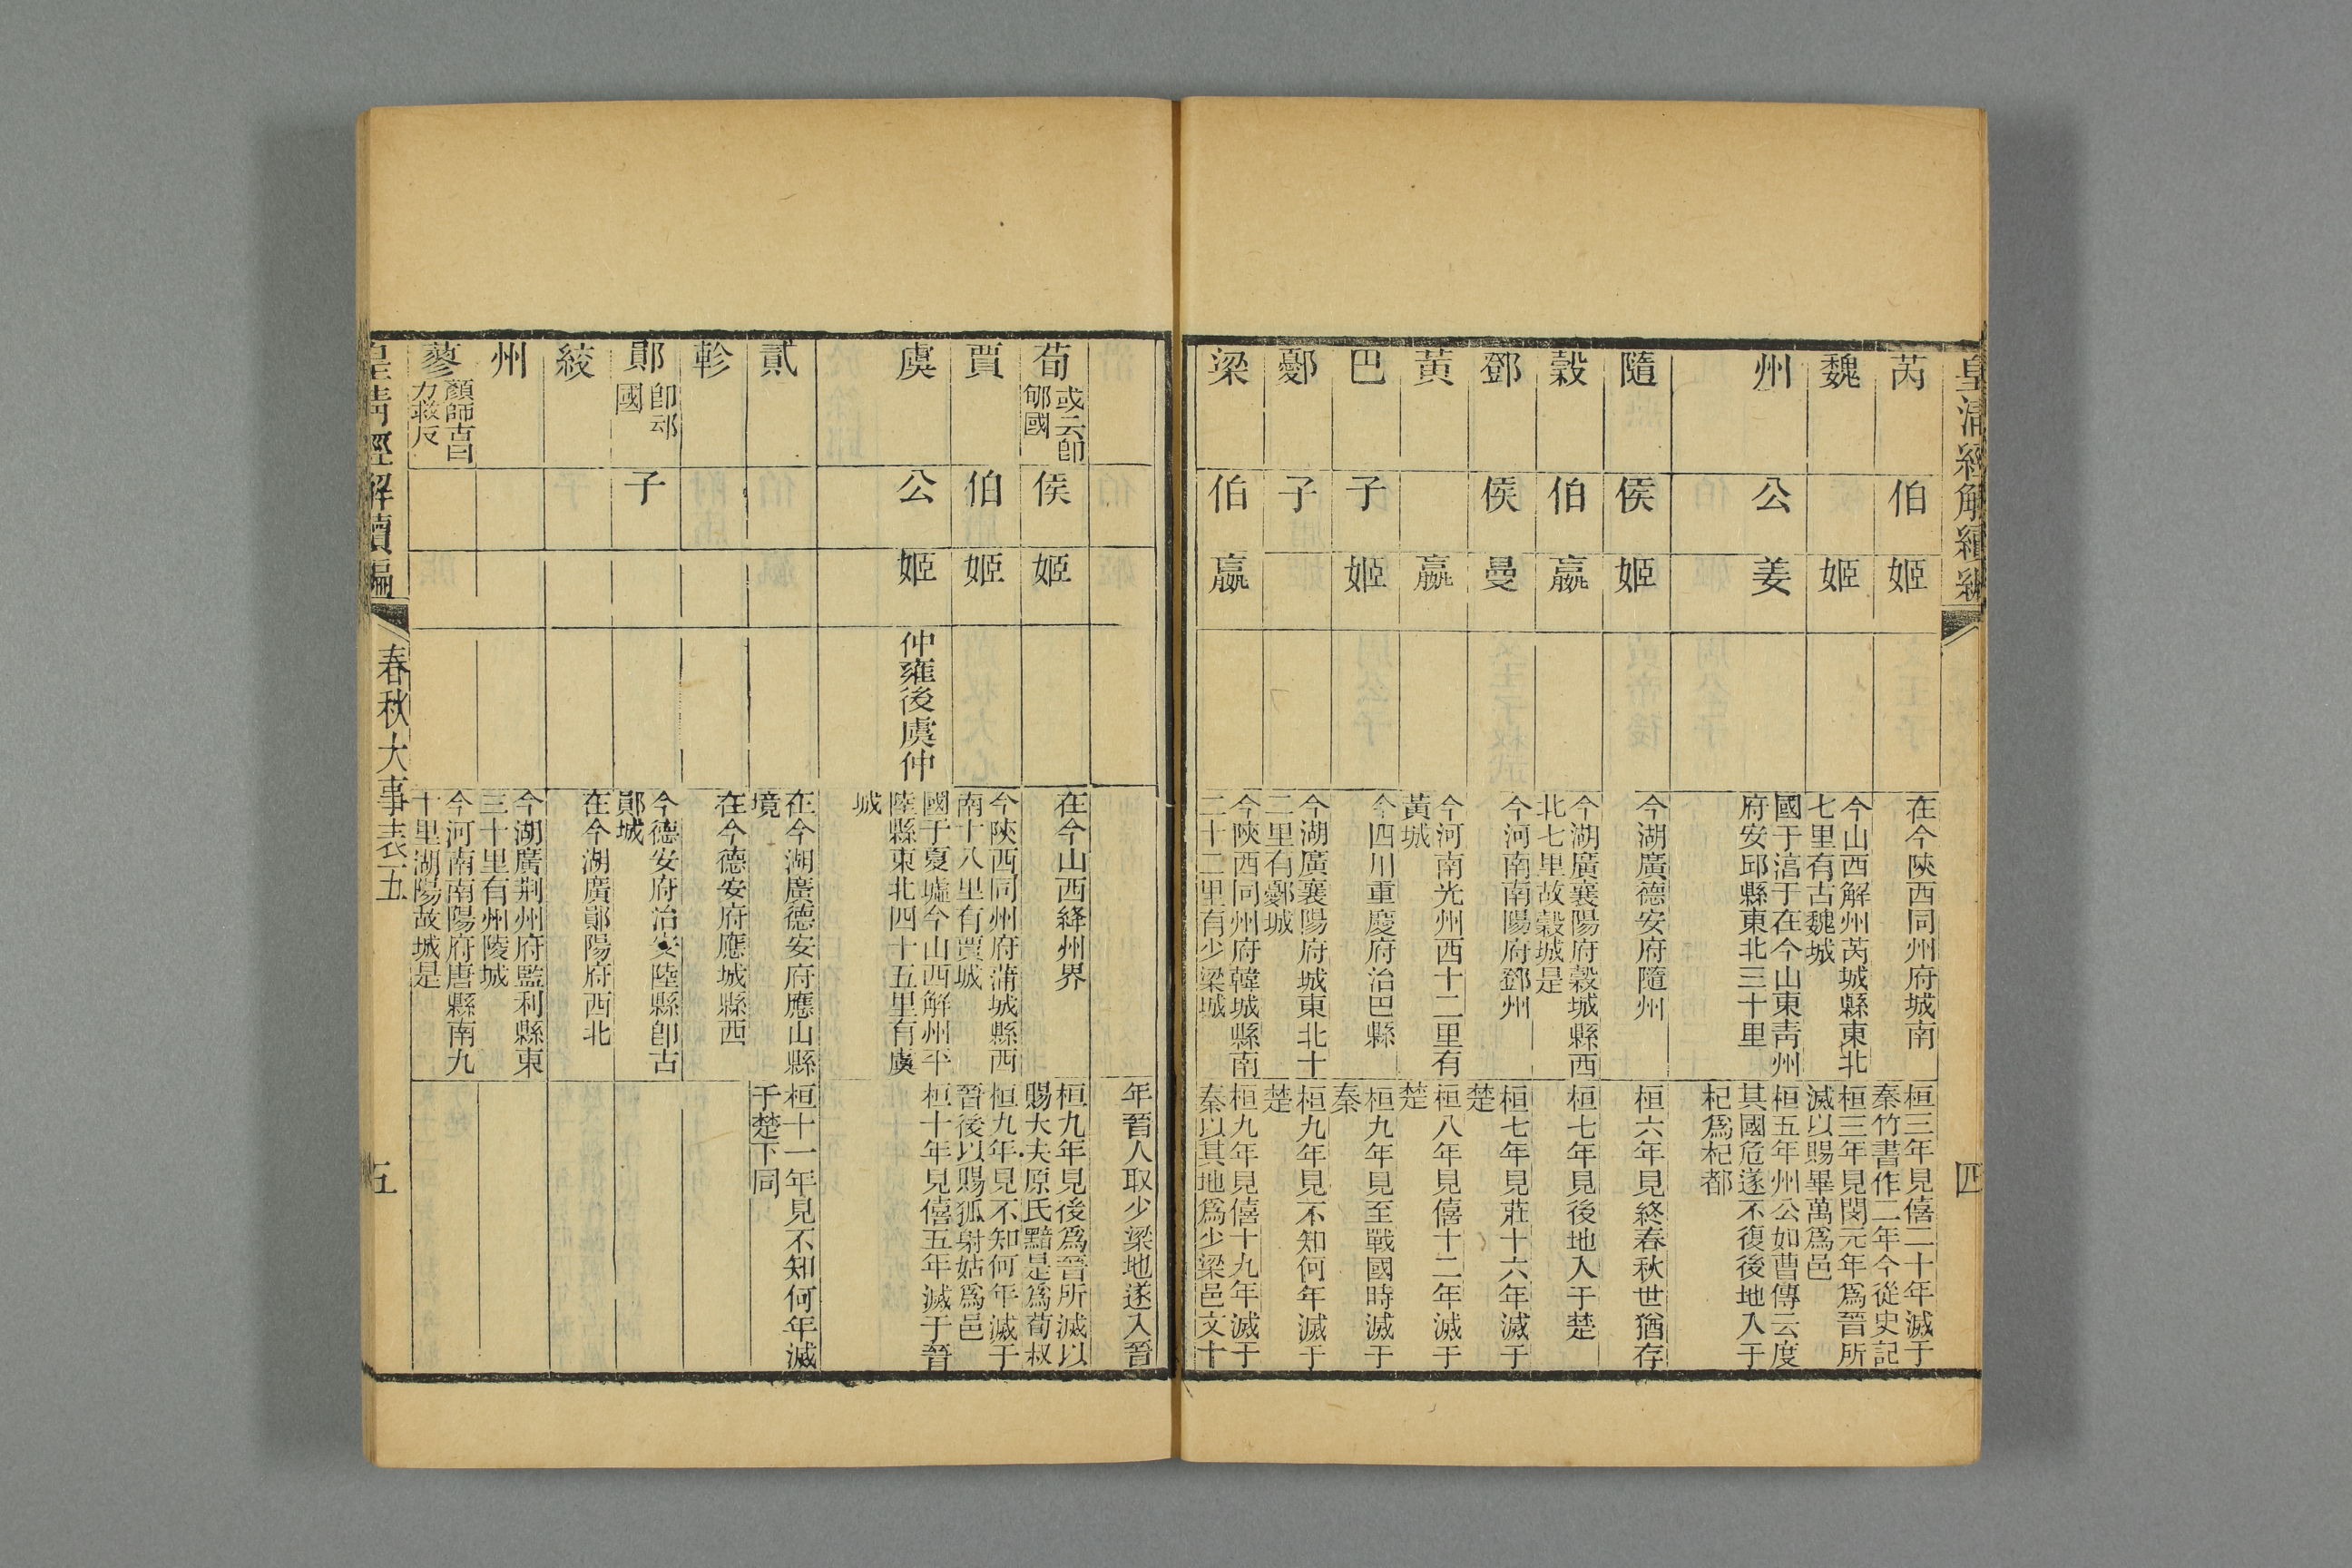 皇清經解續編
四
芮
伯
姬
在今陝西同州府城南
桓三年見僖二十年滅于
秦竹書作二年今從史記
魏
姬
今山西解州芮城縣東北
七里有古魏城
桓三年見閔元年爲晉所
滅以賜畢萬爲邑
州
公
姜
國于淯于在今山東靑州
府安邱縣東北三十里
桓五年州公如曹傳云度
其國危遂不復後地入于
杞爲杞都
隨
侯
姬
今湖廣德安府隨州
桓六年見終春秋世猶存
穀
伯
嬴
今湖廣襄陽府穀城縣西
北七里故穀城是
桓七年見後地入于楚
鄧
侯
曼
今河南南陽府鄧州
桓七年見莊十六年滅于
楚
黃
嬴
今河南光州西十二里有
黃城
桓八年見僖十二年滅于
楚
巴
子
姬
今四川重慶府治巴縣
桓九年見至戰國時滅于
秦
鄾
子
今湖廣襄陽府城東北十
二里有鄾城
桓九年見不知何年滅于
楚
梁
伯
嬴
今陝西同州府韓城縣南
二十二里有少梁城
桓九年見僖十九年滅于
秦以其地爲少梁邑文十
年晉人取少梁地遂入晉
荀
或云卽
郇國
侯
姬
在今山西絳州界
桓九年見後爲晉所滅以
賜大夫原氏黯是爲荀叔
賈
伯
姬
今陝西同州府蒲城縣西
南十八里有賈城
桓九年見不知何年滅于
晉後以賜狐射姑爲邑
虞
公
姬
仲雍後虞仲
國于夏墟今山西解州平
陸縣東北四十五里有虞
城
桓十年見僖五年滅于晉
貳
在今湖廣德安府應山縣
境
桓十一年見不知何年滅
于楚下同
軫
在今德安府應城縣西
鄖
卽䢵
國
子
今德安府治安陸縣卽古
鄖城
絞
在今湖廣鄖陽府西北
州
今湖廣荆州府監利縣東
三十里有州陵城
蓼
顏師古曰
力救反
今河南南陽府唐縣南九
十里湖陽故城是
皇清經解續編
春秋大事表五
五